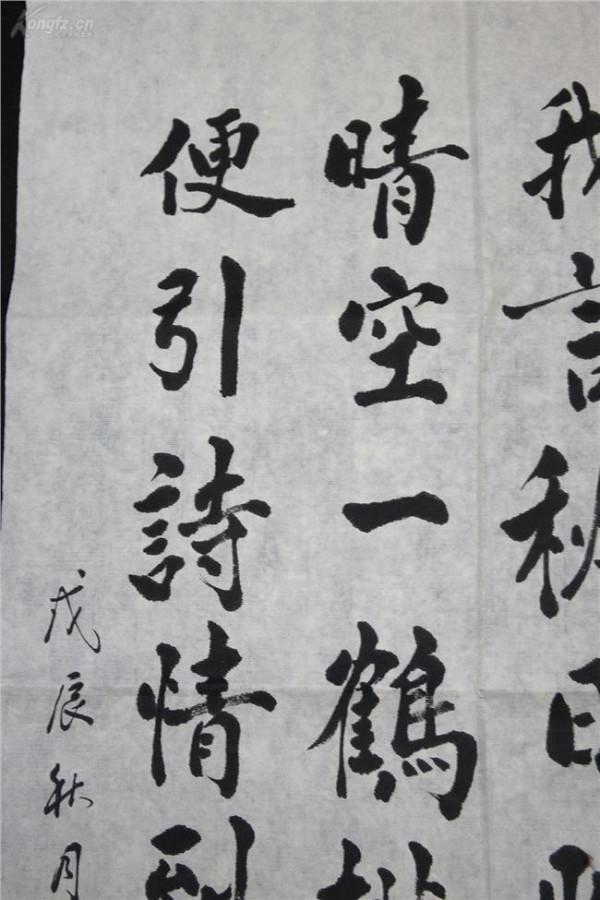 我言秋日勝
晴空一鶴排
便引詩情到
戊辰秋月
Kongfz.cn